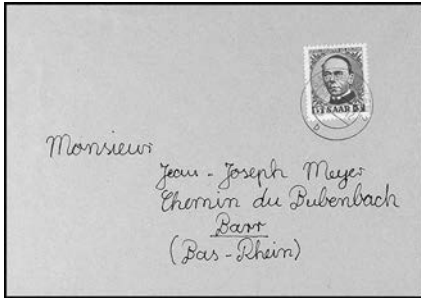 SAAR
Monsieur
Jean-Joseph Meyer
Chemin du Bubenbach
Barr
(Bas-Rhein)